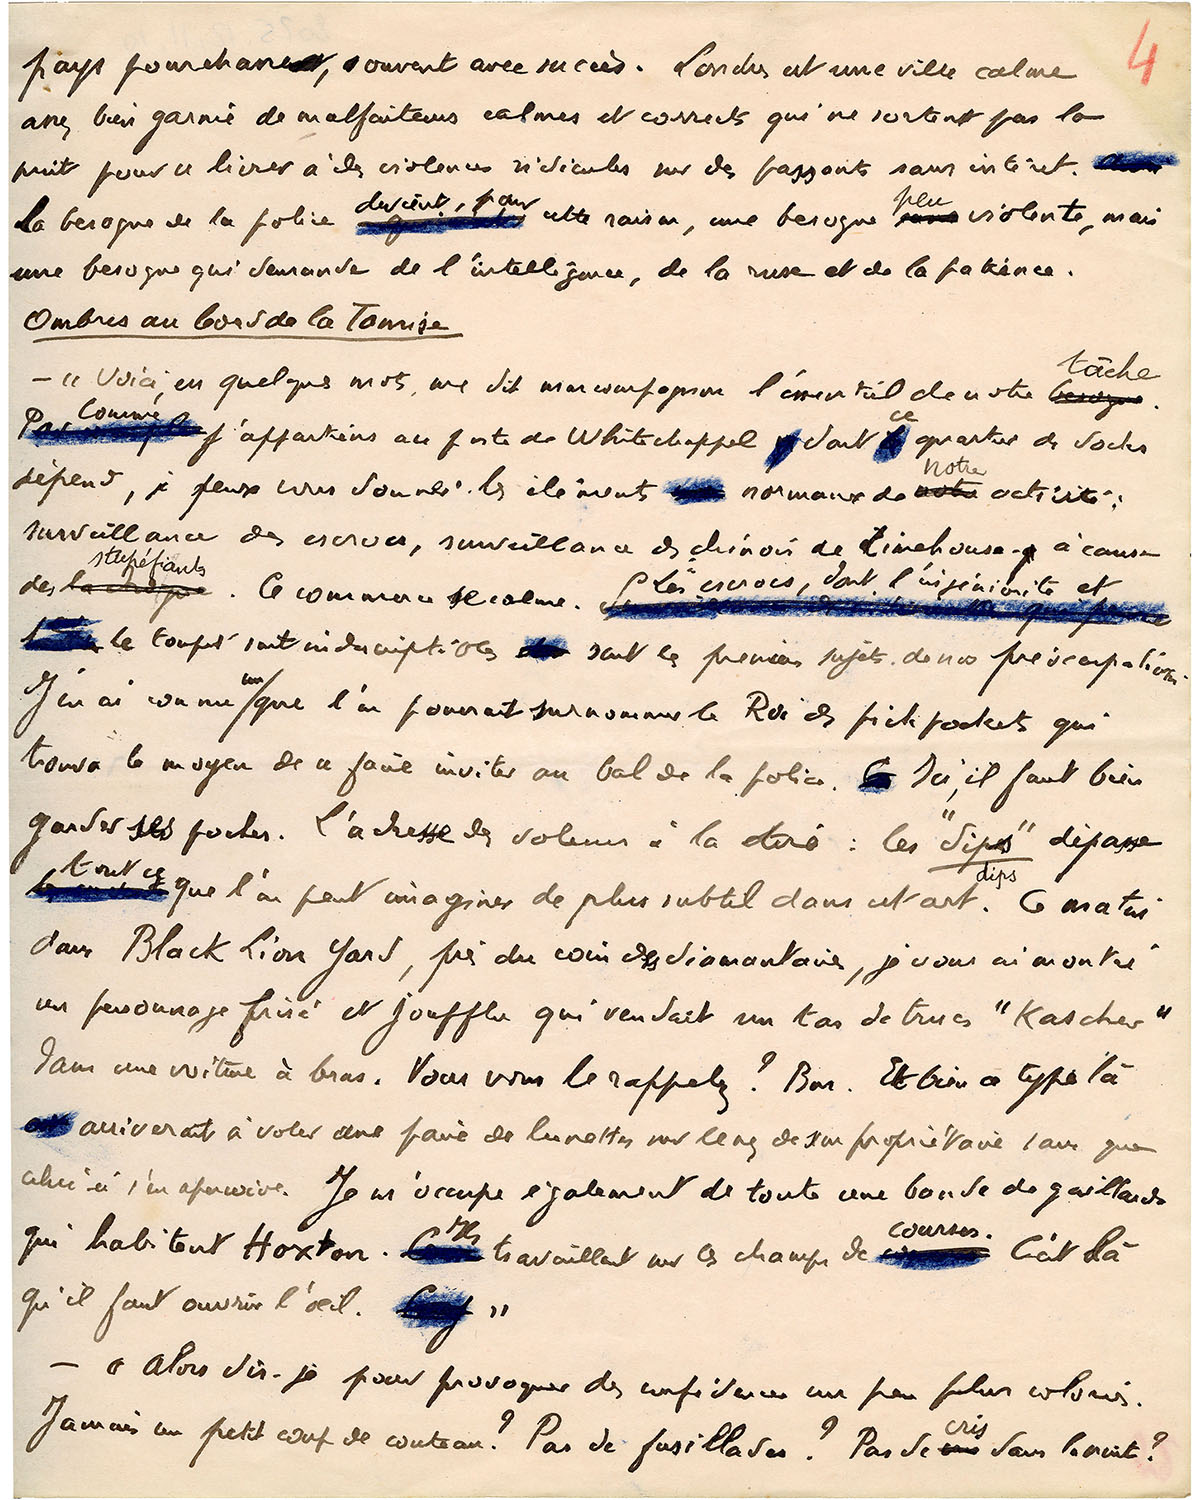 4
pays pourchasse, souvent avec succès. Londres est une ville calme
assez bien garnie de malfaiteurs calmes et corrects qui ne sortent pas la
nuit pour se livrer à des violences ridicules sur des passants sans intérêt.
La besogne de la police devient, pour cette raison, une besogne peu violente, mais
une besogne qui demande de l'intelligence, de la ruse et de la patience.
Ombres au bord de la Tamise
— « Voici, en quelques mots, me dit mon compagnon l'essentiel de notre besogne tâche.
Comme j'appartiens au poste de Whitechappel dont ce quartier de docks
dépend, je peux vous donner les éléments normaux de notre activité :
surveillance des escrocs, surveillance des chinois de Limehouse à cause
des stupéfiants. Ce commerce se calme. Les escrocs, dont l'ingéniosité et
le toupet sont indescriptibles sont les premiers sujets de nos préoccupations.
J'en ai connu un que l'on pourrait surnommer le Roi des pickpockets qui
trouva le moyen de se faire inviter au bal de la police. Ici, il faut bien
garder ses poches. L'adresse des voleurs à la tire : les "dips" dépasse
dips
tout ce que l'on peut imaginer de plus subtil dans cet art. Ce matin
dans Black Lion Yard, près du coin des diamantaires, je vous ai montré
un personnage frisé et joufflu qui vendait un tas de trucs "Kascher"
dans une voiture à bras. Vous vous le rappelez ? Bon. Et bien ce type là
arriverait à voler une paire de lunettes sur le nez de son propriétaire sans que
celui-ci s'en aperçoive. Je m'occupe également de toute une bande de gaillards
qui habitent Hoxton. Ils travaillent sur les champs de courses. C'est là
qu'il faut ouvrir l'œil. »
— « Alors dis-je pour provoquer des confidences un peu plus colorées.
Jamais un petit coup de couteau ? Pas de fusillades ? Pas de cris dans la nuit ?